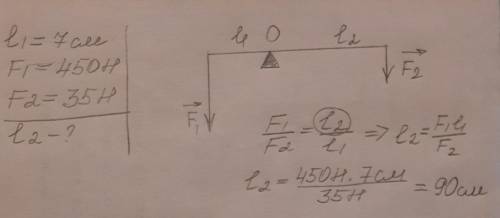 l₁ = 7 см
F₁ = 450 Н
F₂ = 35 Н
l₂ - ?
l₁ O l₂
F₁ F₂
F₁/F₂ = l₂/l₁ => l₂ = F₁l₁/F₂
l₂ = 450 Н · 7 см/35 Н = 90 см